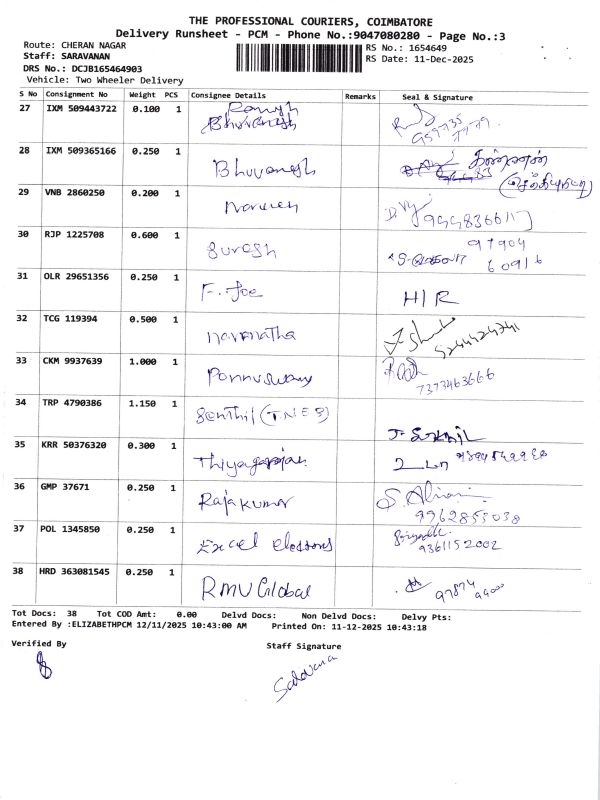 THE PROFESSIONAL COURIERS, COIMBATORE
Delivery Runsheet - PCM - Phone No.:9047080280 - Page No.:3
Route: CHERAN NAGAR RS No.: 1654649
Staff: SARAVANAN RS Date: 11-Dec-2025
DRS No.: DCJB165464903
Vehicle: Two Wheeler Delivery
S No Consignment No Weight PCS Consignee Details Remarks Seal & Signature
27 IXM 509443722 0.100 1 Ramesh
Bhuvanesh
28 IXM 509365166 0.250 1 Bhuvanesh
29 VNB 2860250 0.200 1 Naveen
30 RJP 1225708 0.600 1 Suresh 97904
60916
31 OLR 29651356 0.250 1 F. Joe H/R
32 TCG 119394 0.500 1 navanatha
33 CKM 9937639 1.000 1 Ponnuswamy
7373463666
34 TRP 4790386 1.150 1 Senthil (TNEB)
35 KRR 50376320 0.300 1 Thiyagarajan
36 GMP 37671 0.250 1 Rajakumar
9962855038
37 POL 1345850 0.250 1 Excel blossoms
9361152002
38 HRD 363081545 0.250 1 RMV Global
Tot Docs: 38 Tot COD Amt: 0.00 Delvd Docs: Non Delvd Docs: Delvy Pts:
Entered By :ELIZABETHPCM 12/11/2025 10:43:00 AM Printed On: 11-12-2025 10:43:18
Verified By Staff Signature
Saravana